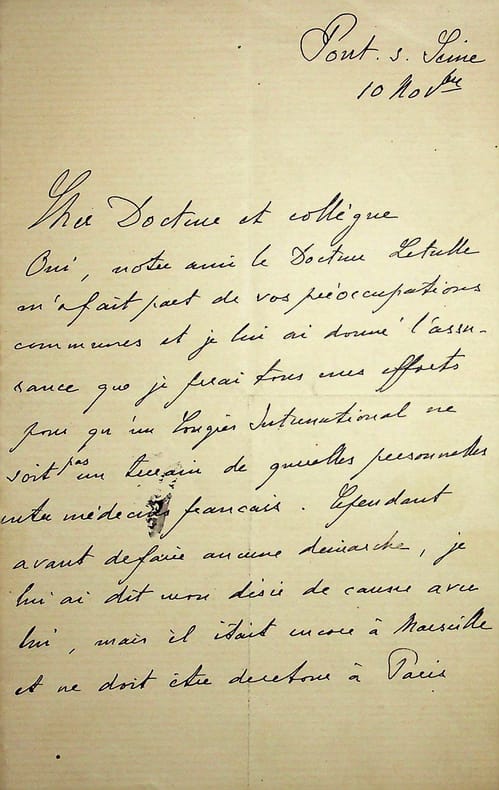 Pont. s. Seine
10 Novbre
Cher Docteur et collègue
Oui, notre ami le Docteur Letulle
m'a fait part de vos préoccupations
communes et je lui ai donné l'assu-
rance que je ferai tous mes efforts
pour qu'un Congrès International ne
soit pas un terrain de querelles personnelles
entre médecins français. Cependant
avant de faire aucune démarche, je
lui ai dit mon désir de causer avec
lui, mais il était encore à Marseille
et ne doit être de retour à Paris